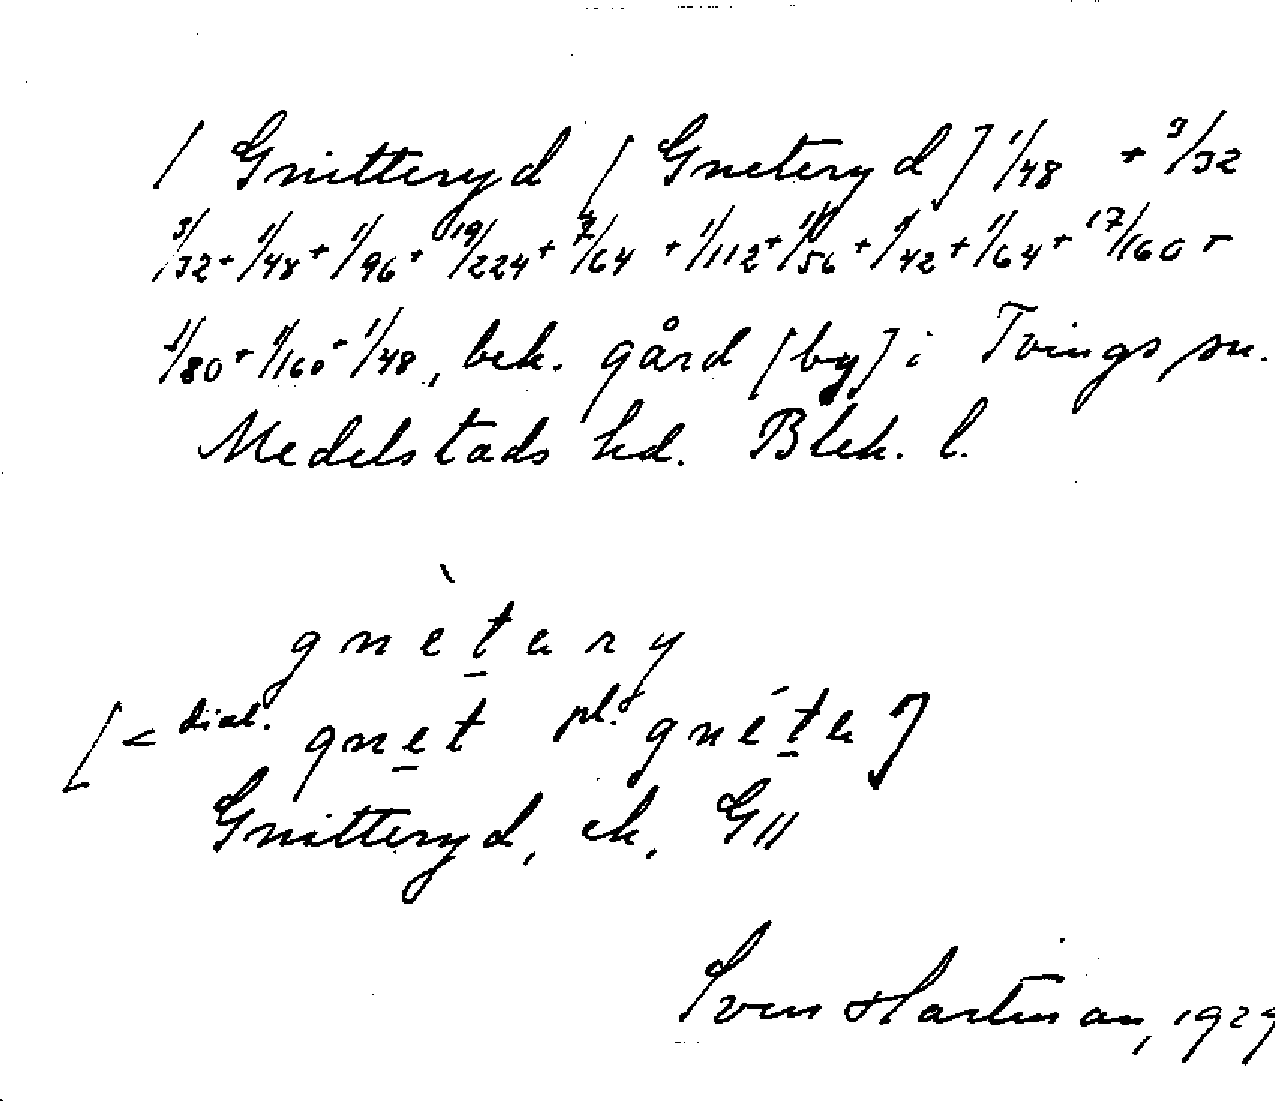 / Gnitteryd [Gneteryd] 1/48 + 9/32
3/32 + 1/48 + 1/96 + 19/224 + 7/64 + 1/112 + 1/56 + 1/42 + 1/64 + 17/160 +
1/80 + 1/160 + 1/48, bek. gård [by] i Tvings sn.
Medelstads hd. Blek. l.
gnètary
[< dial. gnet pl. gnéta]
Gnitteryd, ek. G11
Sven Hartman, 1929